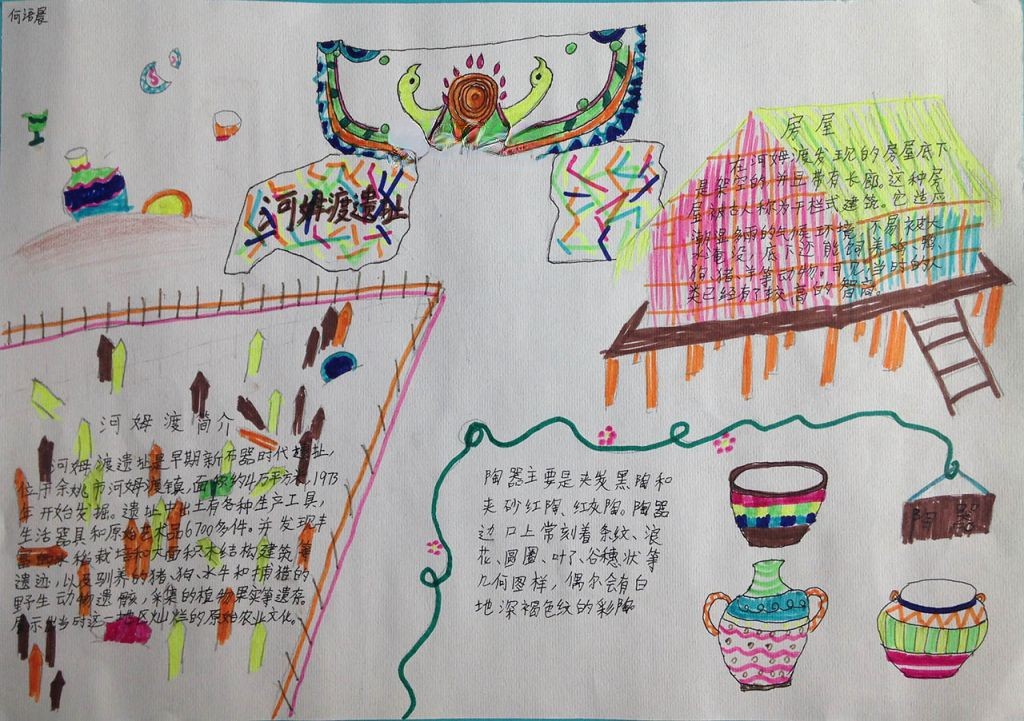 何语晨
河姆渡遗址
房屋
在河姆渡发现的房屋底下
是架空的,并且带有长廊。这种房
屋被古人称为干栏式建筑。它适应
潮湿多雨的气候环境,不易被大
水淹没,底下还能饲养鸡、鸭、
狗、猪、羊等动物。可见当时的人
类已经有了较高的智商。
河姆渡简介
河姆渡遗址是早期新石器时代遗址,
位于余姚市河姆渡镇,面积约4万平方米,1973
年开始发掘。遗址中出土有各种生产工具,
生活器具和原始艺术品6700多件。并发现丰
富的水稻栽培和大面积木结构建筑等
遗迹,以及驯养的猪、狗、水牛和捕猎的
野生动物遗骸,采集的植物果实等遗存。
展示出当时这一地区灿烂的原始农业文化。
陶器
陶器主要是夹炭黑陶和
夹砂红陶、红灰陶。陶器
边口上常刻着条纹、浪
花、圆圈、叶子、谷穗状等
几何图样,偶尔会有白
地深褐色纹的彩陶